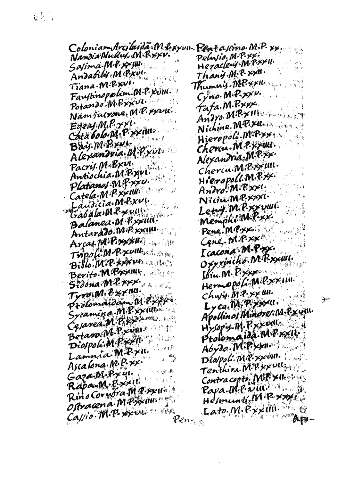 Coloniam Arcilaida. M.P.XXVII.
Nandianulus. M.P.XXV.
Sasima. M.P.XXIIII.
Andabilis. M.P.XVI.
Tiana. M.P.XVI.
Faustinopolim. M.P.XVIII.
Potando. M.P.XXVI.
Namfucrone. M.P.XXVII.
Egeas. M.P.XXI.
Catabolo. M.P.XXIIII.
Bais. M.P.XVI.
Alexandria. M.P.XVI.
Pacris. M.P.XVI.
Antiochia. M.P.XVI.
Platanos. M.P.XXV.
Catela. M.P.XXIIII.
Laudicia. M.P.XVI.
Gabala. M.P.XVIII.
Balanea. M.P.XXVII.
Antarado. M.P.XXIIII.
Arcas. M.P.XXIII.
Tripoli. M.P.XVIII.
Biblo. M.P.XXXVI.
Berito. M.P.XXIIII.
Sidona. M.P.XXX.
Tyro. M.P.XXIIII.
Ptolomaidam. M.P.XXXII.
Sycamina. M.P.XXIIII.
Cesarea. M.P.XX.
Betaro. M.P.XVIII.
Diospoli. M.P.XXII.
Iamnia. M.P.XII.
Ascalona. M.P.XX.
Gaza. M.P.XVI.
Rapa. M.P.XXII.
Rino Corura. M.P.XXII.
Ostracena. M.P.XXIIII.
Cassio. M.P.XXVI.
Pen-
Pentassino. M.P.XX.
Pelusio. M.P.XX.
Heracleus. M.P.XXII.
Thanis. M.P.XXII.
Thumuis. M.P.XXII.
Cyno. M.P.XXV.
Tafa. M.P.XXX.
Andro. M.P.XII.
Nichine. M.P.XII.
Hieropoli. M.P.
Chereu. M.P.XXIIII.
Alexandria. M.P.XX.
Chereu. M.P.XXIIII.
Hieropoli. M.P.XX.
Andro. M.P.XXI.
Niciu. M.P.XXXI.
Letus. M.P.XXVIII.
Memphi. M.P.XX.
Peme. M.P.XX.
Cene. M.P.XX.
Icacona. M.P.XX.
Oxyrincho. M.P.XXIIII.
Ibiu. M.P.XXX.
Hermopoli. M.P.XXIIII.
Chusis. M.P.XXIIII.
Lyco. M.P.XXXV.
Apollinos Minores. M.P.XVIII.
Hysopis. M.P.XXVIII.
Ptolomaida. M.P.XXII.
Abydo. M.P.XXII.
Diospoli. M.P.XXVIII.
Tentira. M.P.XXVII.
Contracopto. M.P.XII.
Papa. M.P.VIII.
Hermunti. M.P.XXX.
Lato. M.P.XXIIII.
Apo-